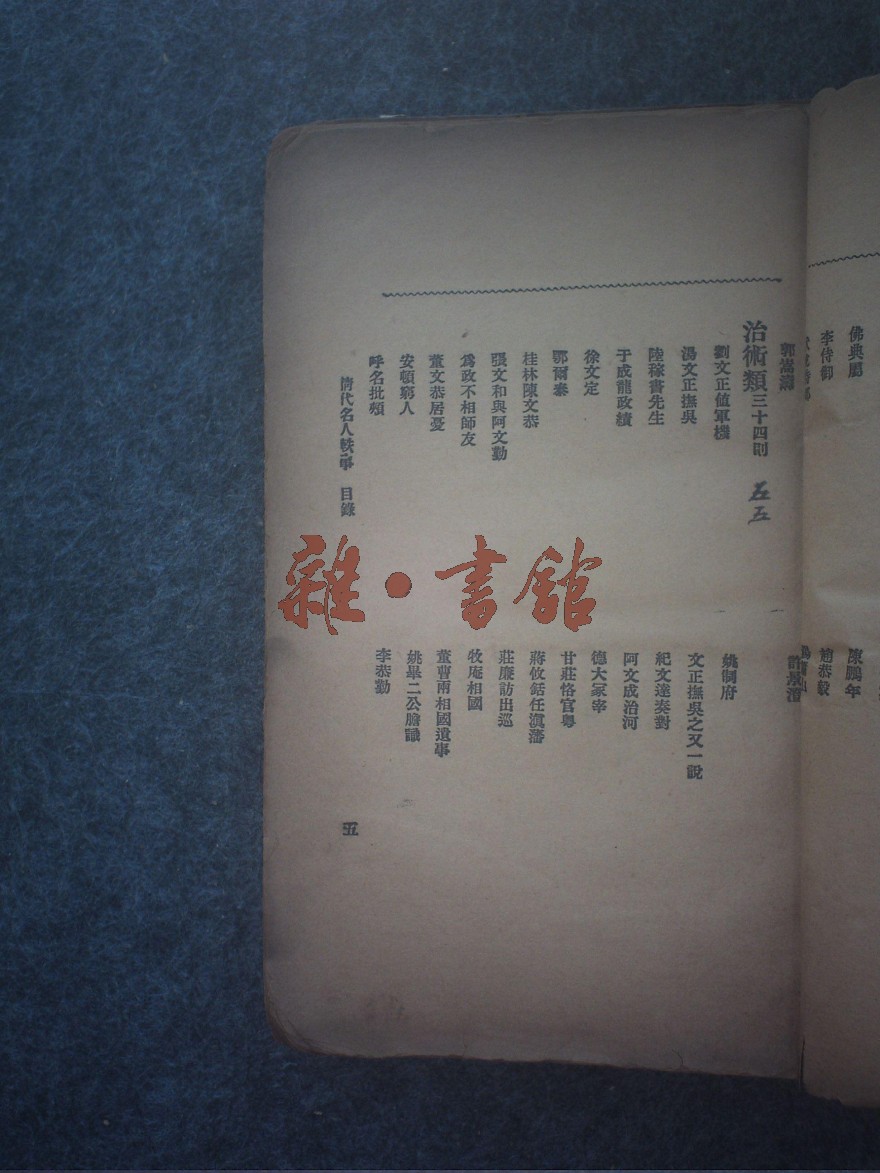 佛典屬
陳鵬年
李侍御
趙恭毅
郭嵩燾
許景澄
治術類三十四則 五五
劉文正値軍機
姚制府
湯文正撫吳
文正撫吳之又一說
陸稼書先生
紀文達奏對
于成龍政績
阿文成治河
徐文定
德大冢宰
鄂爾泰
甘莊恪官粵
桂林陳文恭
蔣攸銛任滇藩
張文和與阿文勤
莊廉訪出巡
爲政不相師友
牧庵相國
董文恭居憂
董曹兩相國遺事
安頓窮人
姚畢二公膽識
呼名批頰
李恭勤
清代名人軼事 目錄
五
雜·書館